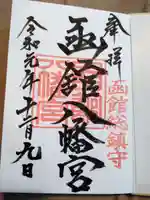 奉拝
函館総鎮守
函館八幡宮
令和元年十一月九日